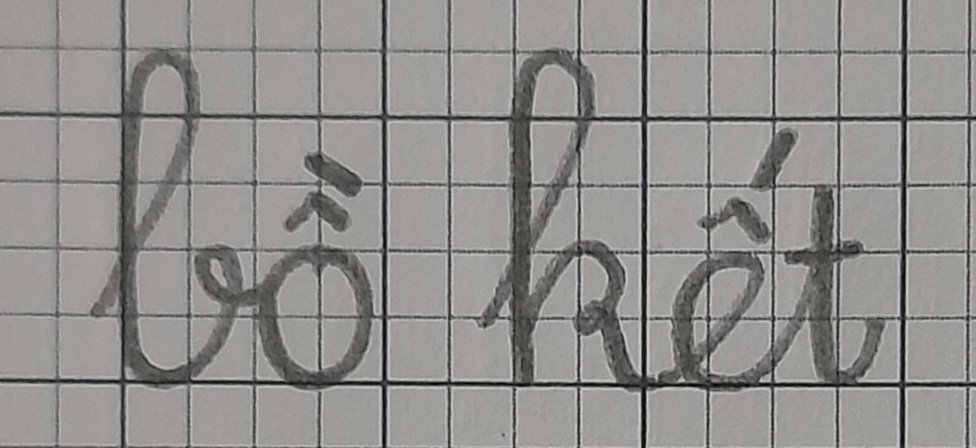 bồ kết